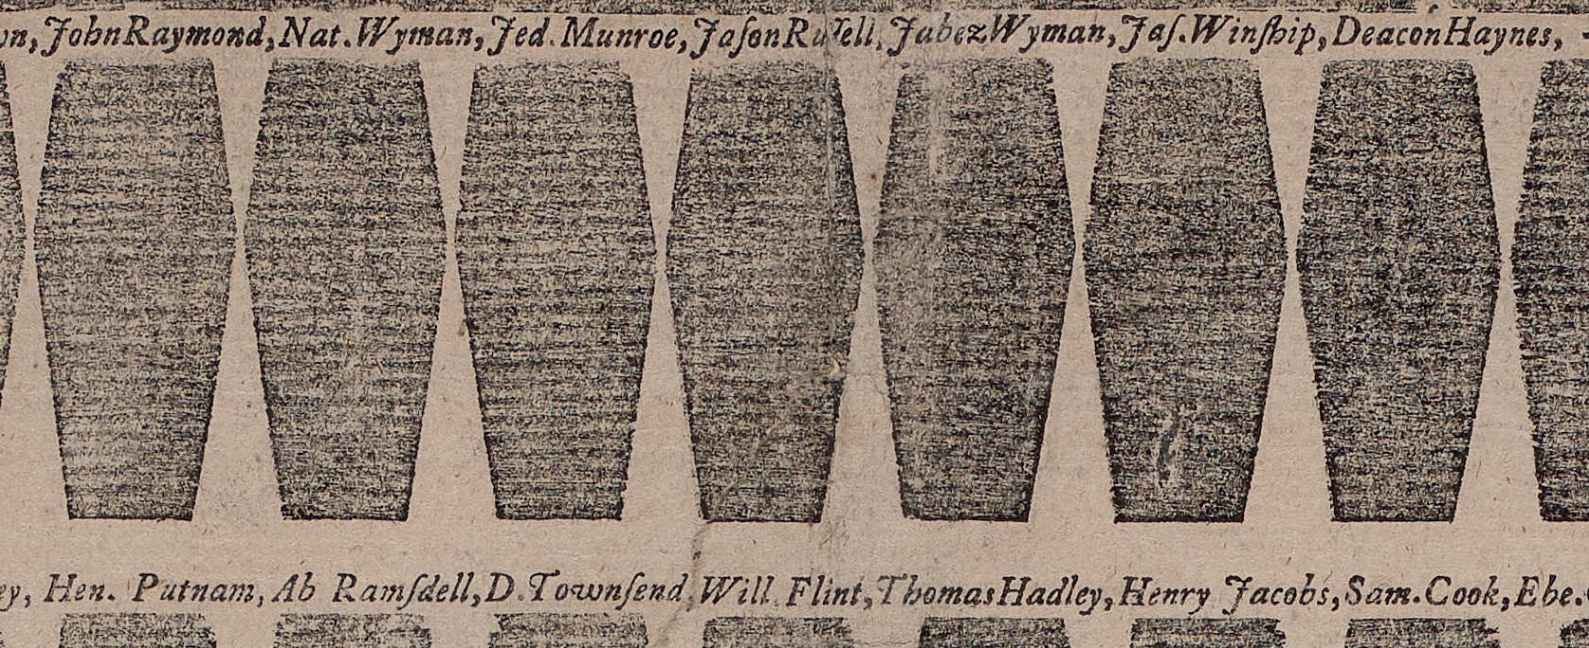 JohnRaymond, Nat. Wyman, Jed. Munroe, Jaſon Ruſſell, Jabez Wyman, Jaſ. Winſhip, Deacon Haynes,
Hen. Putnam, Ab Ramſdell, D. Townſend, Will. Flint, Thomas Hadley, Henry Jacobs, Sam. Cook, Ebe.